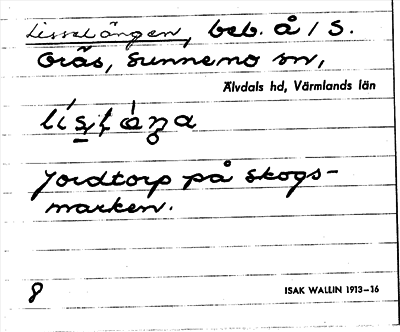 Lisselängen, beb. Å 1 S.
Gräs, Sunnemo sn,
Älvdals hd, Värmlands län
Jordtorp på skogs-
marken.
8
ISAK WALLIN 1913–16